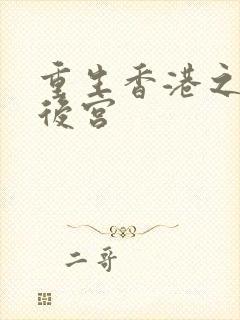 重生香港之
後宮
二哥